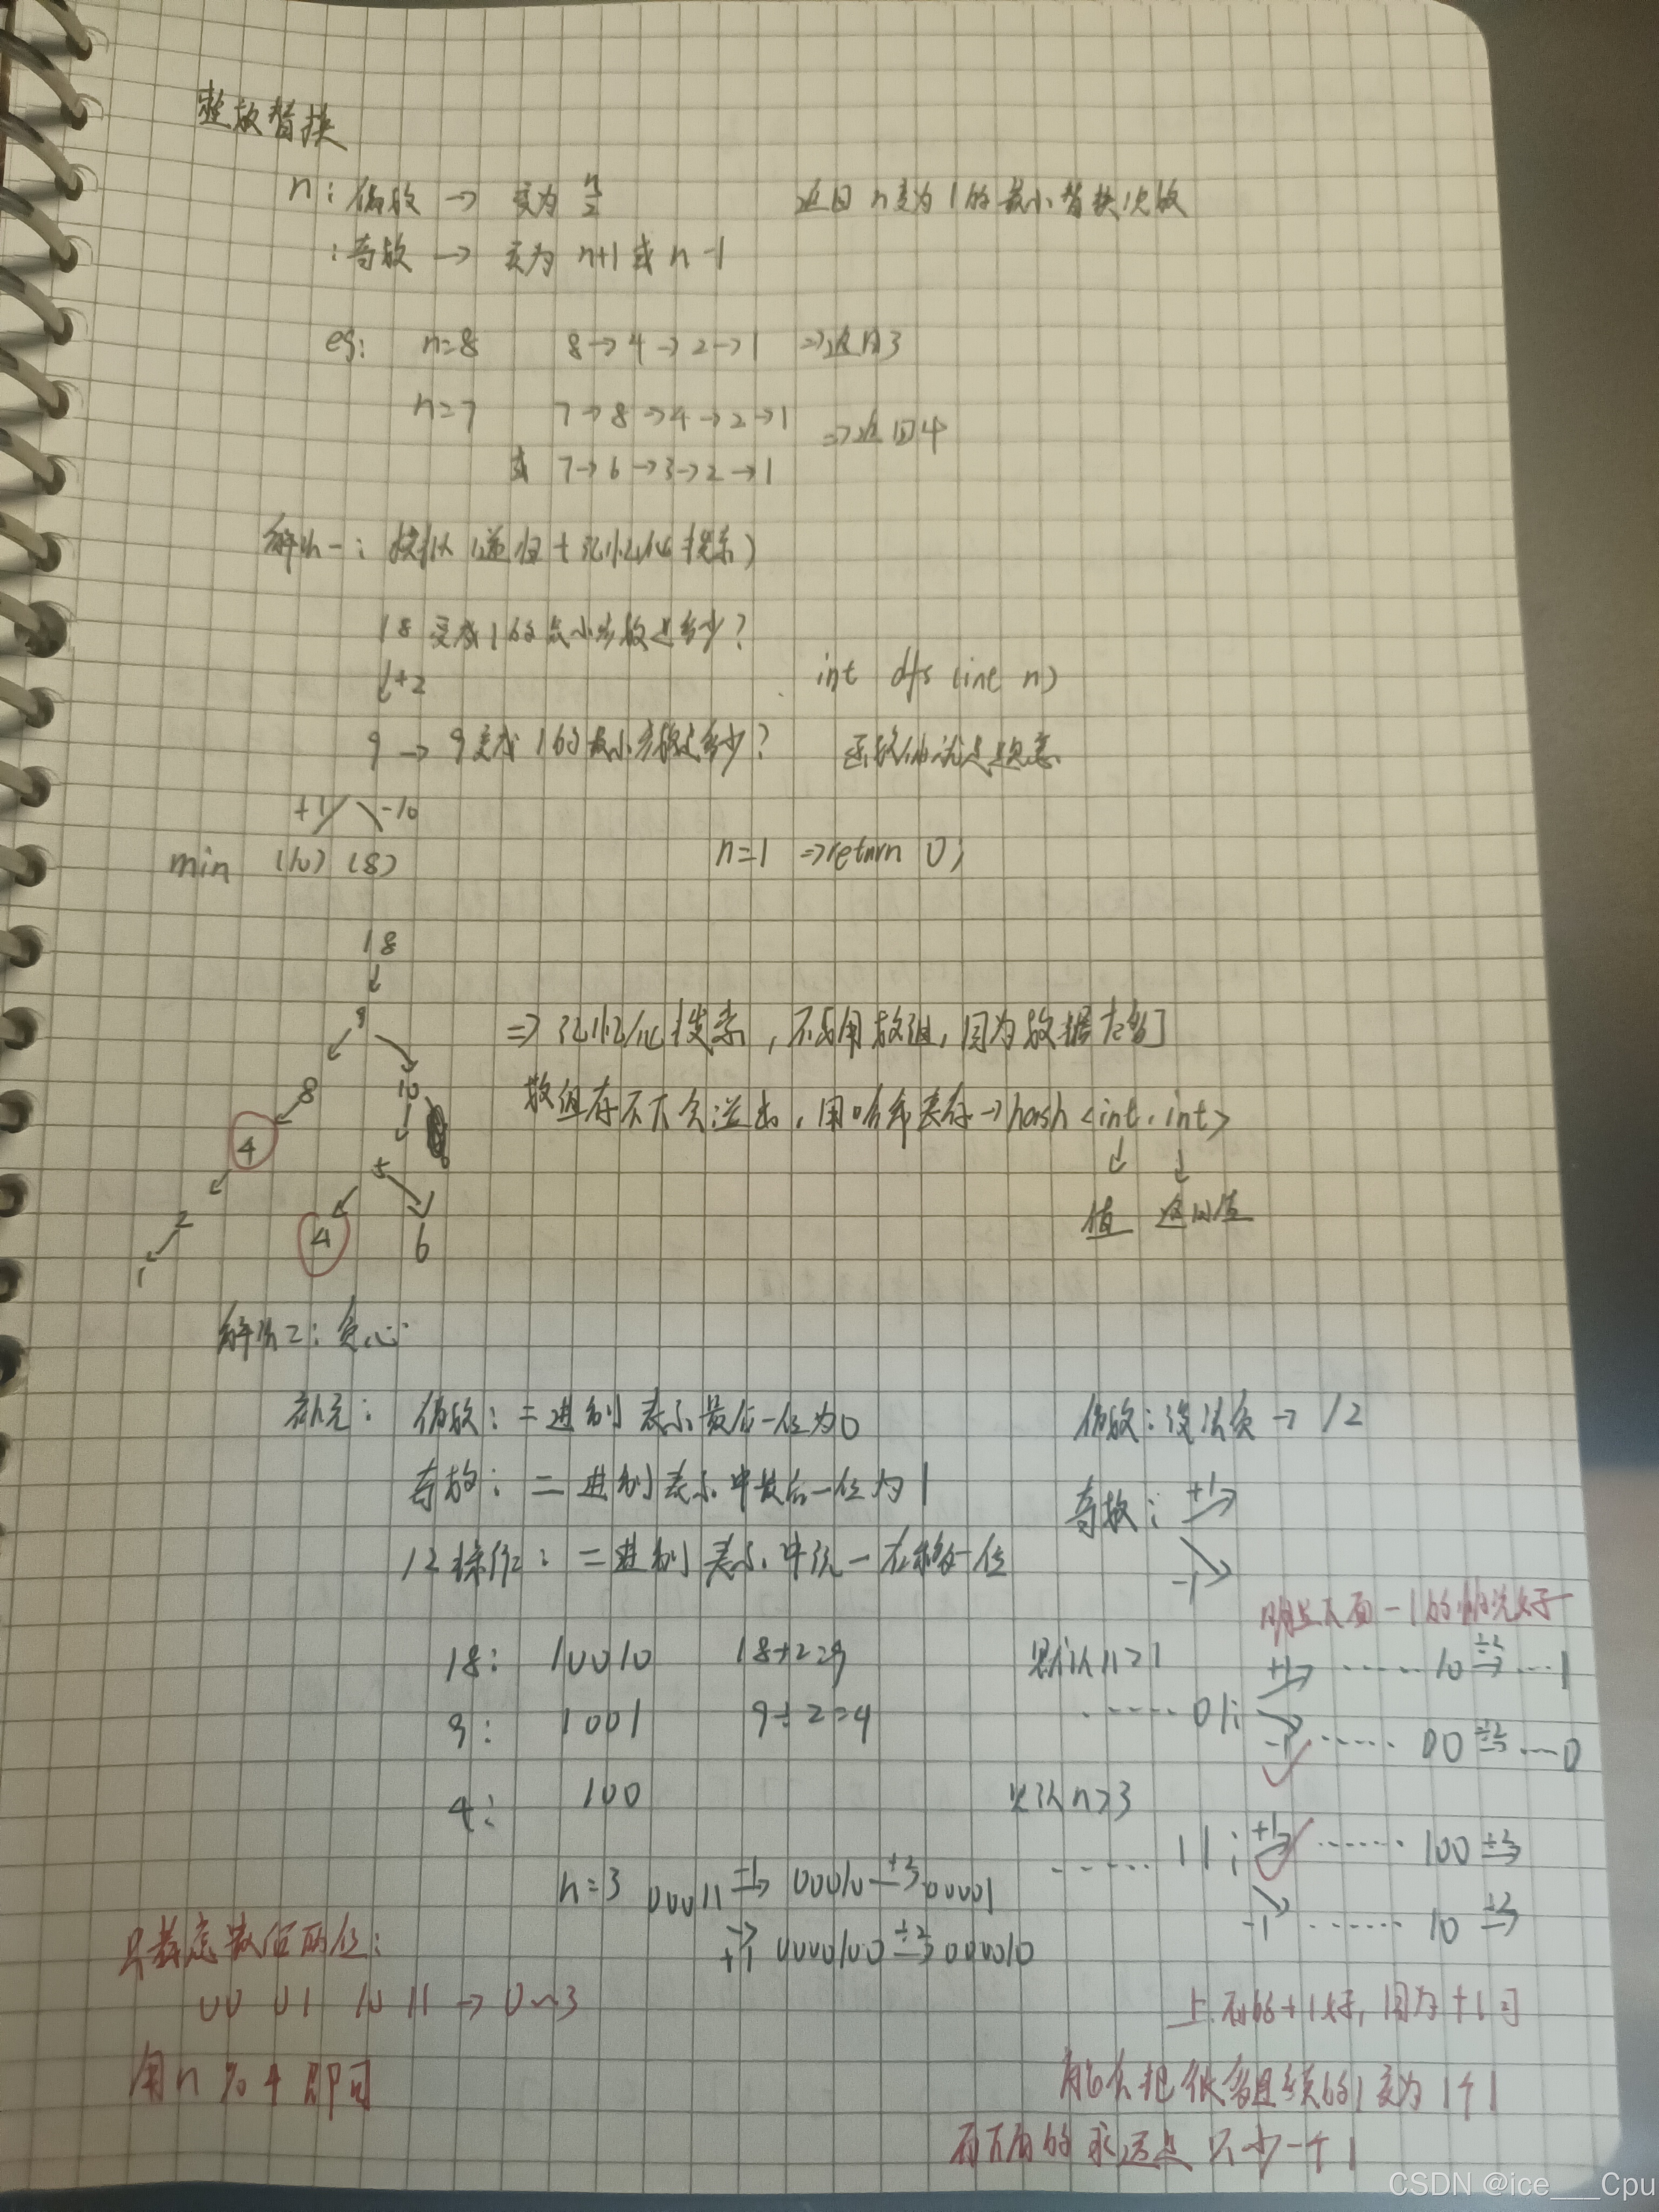 整数替换
n：偶数 → 变为 n/2 返回 n变为1的最小替换次数
：奇数 → 变为 n+1 或 n-1
eg: n=8 8→4→2→1 ⇒返回3
n=7 7→8→4→2→1 ⇒返回4
或 7→6→3→2→1
解法一：模拟（递归+记忆化搜索）
18变成1的最小步数是多少？
↓÷2 int dfs (int n)
9 → 9变成1的最小步数是多少？ 函数体就是题意
+1 -1
min (10) (8) n=1 ⇒return 0;
18
↓
9 ⇒ 记忆化搜索，不能用数组，因为数据太多了
8 10 数组存不下会溢出，用哈希表存→hash <int, int>
4 5 ↓ ↓
2 4 6 值 返回值
1
解法二：贪心
补充：偶数：二进制表示最后一位为0 偶数：没法贪 → /2
奇数：二进制表示中最后一位为1 奇数：+1→
/2操作：二进制表示中统一右移一位 -1→
明显下面-1的情况好于
18: 10010 18÷2=9 默认n>1 +1→ ······10 ÷2→ ···1
9: 1001 9÷2=4 ······01: -1→ ······00 ÷2→ ···0
4: 100 默认n>3
······11: +1→ ······100 ÷2→
n=3 00011 -1→ 00010 ÷2→ 00001
-1→ ······10 ÷2→
+1→ 0000100 ÷2→ 000010
只考虑数值两位：
00 01 10 11 → 0~3 上面的+1好，因为+1可
用n % 4 即可 能会把很多连续的1变为1个1
而下面的永远是只少一个1
CSDN @ice___Cpu